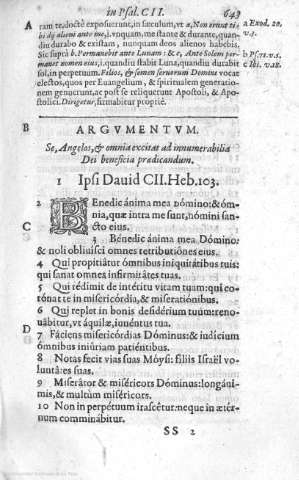 in Psal. CII. 643
A ram te, docte exposuerunt, in sæculum, vt a, Non erunt ti- a Exod. 20.
bi dij alieni ante me, i. vnquam, me stante & durante, quan- v.3.
diu durabo & existam, nunquam deos alienos habebis.
Sic supra b. Permanebit ante Lunam: & c, Ante Solem per- b Ps. 71. v. 5.
manet nomen eius, i. quandiu stabit Luna, quandiu durabit c Ibi. v. 18.
sol, in perpetuum. Filios, & semen seruorum Domini vocat
electos, quos per Euangelium, & spiritualem generatio-
nem genuerunt, ac post se reliquerunt Apostoli, & Apo-
stolici. Dirigetur, firmabitur propriè.
B ARGVMENTVM.
Se, Angelos, & omnia excitat ad innumerabilia
Dei beneficia prædicandum.
1 Ipsi Dauid CII. Heb. 103.
2 BEnedic ánima mea Dómino: & óm-
nia, quæ intra me sunt, nómini san-
C cto eius.
3 Bénedic ánima mea Dómino:
& noli obliuisci omnes retributiónes eius.
4 Qui propitiátur ómnibus iniquitátibus tuis:
qui sanat omnes infirmitátes tuas.
5 Qui rédimit de intéritu vitam tuam: qui co-
rónat te in misericórdia, & miseratiónibus.
6 Qui replet in bonis desidérium tuum: reno-
uábitur, vt áquilæ, iuuéntus tua.
D 7 Fáciens misericórdias Dóminus: & iudícium
ómnibus iniúriam patiéntibus.
8 Notas fecit vias suas Móysi: fíliis Israël vo-
luntátes suas.
9 Miserátor & miséricors Dóminus: longáni-
mis, & multùm miséricors.
10 Non in perpétuum irascétur: neque in ætér-
num comminábitur.
SS 2